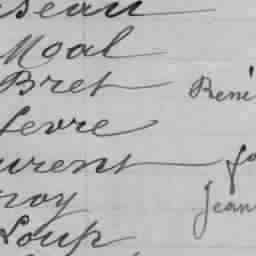 seau
Moal
Bret René
Levre
urent
roy Jean
Loup